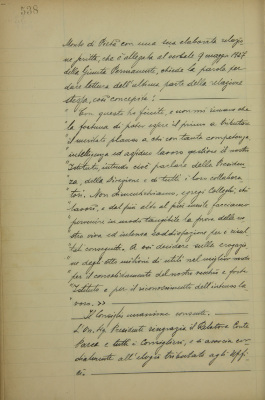 538
Monte di Pietà con una sua elaborata relazio-
ne scritta, che è allegata al verbale 9 maggio 1927
della Giunta Permanente, chiede la parola per
dare lettura dell'ultima parte della relazione
stessa, così concepita:
"Con questo ho finito, e non mi rimane che
"la fortuna di poter essere il primo a tributare
"il meritato plauso a chi con tanta competenza
"intelligenza ed assiduo lavoro gestisce il nostro
"Istituto, intendo cioè parlare della Presiden-
"za, della Direzione e di tutti i loro collabora-
"tori. Non dimentichiamo, egregi Colleghi, che
"lavorò, e dal più alto al più umile facciamo
"pervenire in modo tangibile la prova della no-
"stra viva ed intensa soddisfazione per i risul-
"tati conseguiti. A voi decidere sulla erogazio-
"ne degli otto milioni di utili nel miglior modo
"per il consolidamento del nostro antico e forte
"Istituto e per il riconoscimento dell'intenso la-
"voro."
Il Consiglio unanime consente.
L'On. Sig. Presidente ringrazia il Relatore Conte
Pacca e tutti i Consiglieri, e si associa cor-
dialmente all'elogio tributato agli Uffi-
ci.